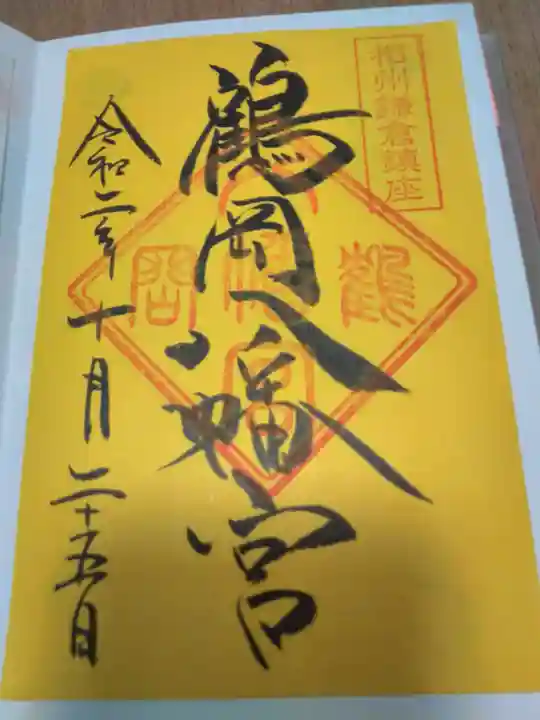 相州鎌倉鎮座
鶴岡八幡宮
鶴岡八幡宮
令和二年十月二十五日